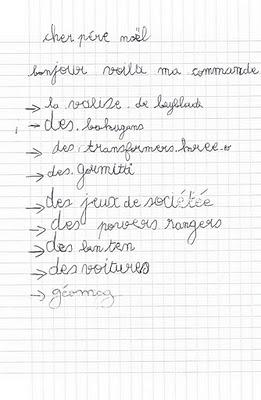 cher père noël
bonjour voilà ma commande
→ la valise de beyblade
→ des bakugans
→ des transformers
→ des gormitti
→ des jeux de sociétée
→ des powers rangers
→ des ben ten
→ des voitures
→ géomag